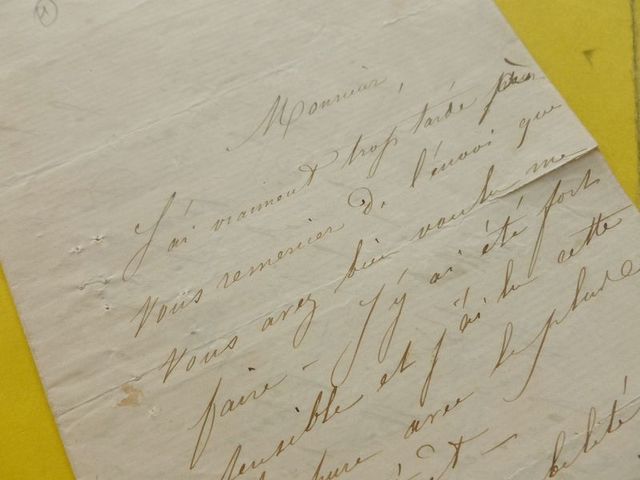 1
Monsieur,
J'ai vraiment trop tardé
vous remercier de l'envoi que
vous avez bien voulu me
faire - J'y ai été fort
sensible et j'ai lu cette
avec le plus de
- bilité